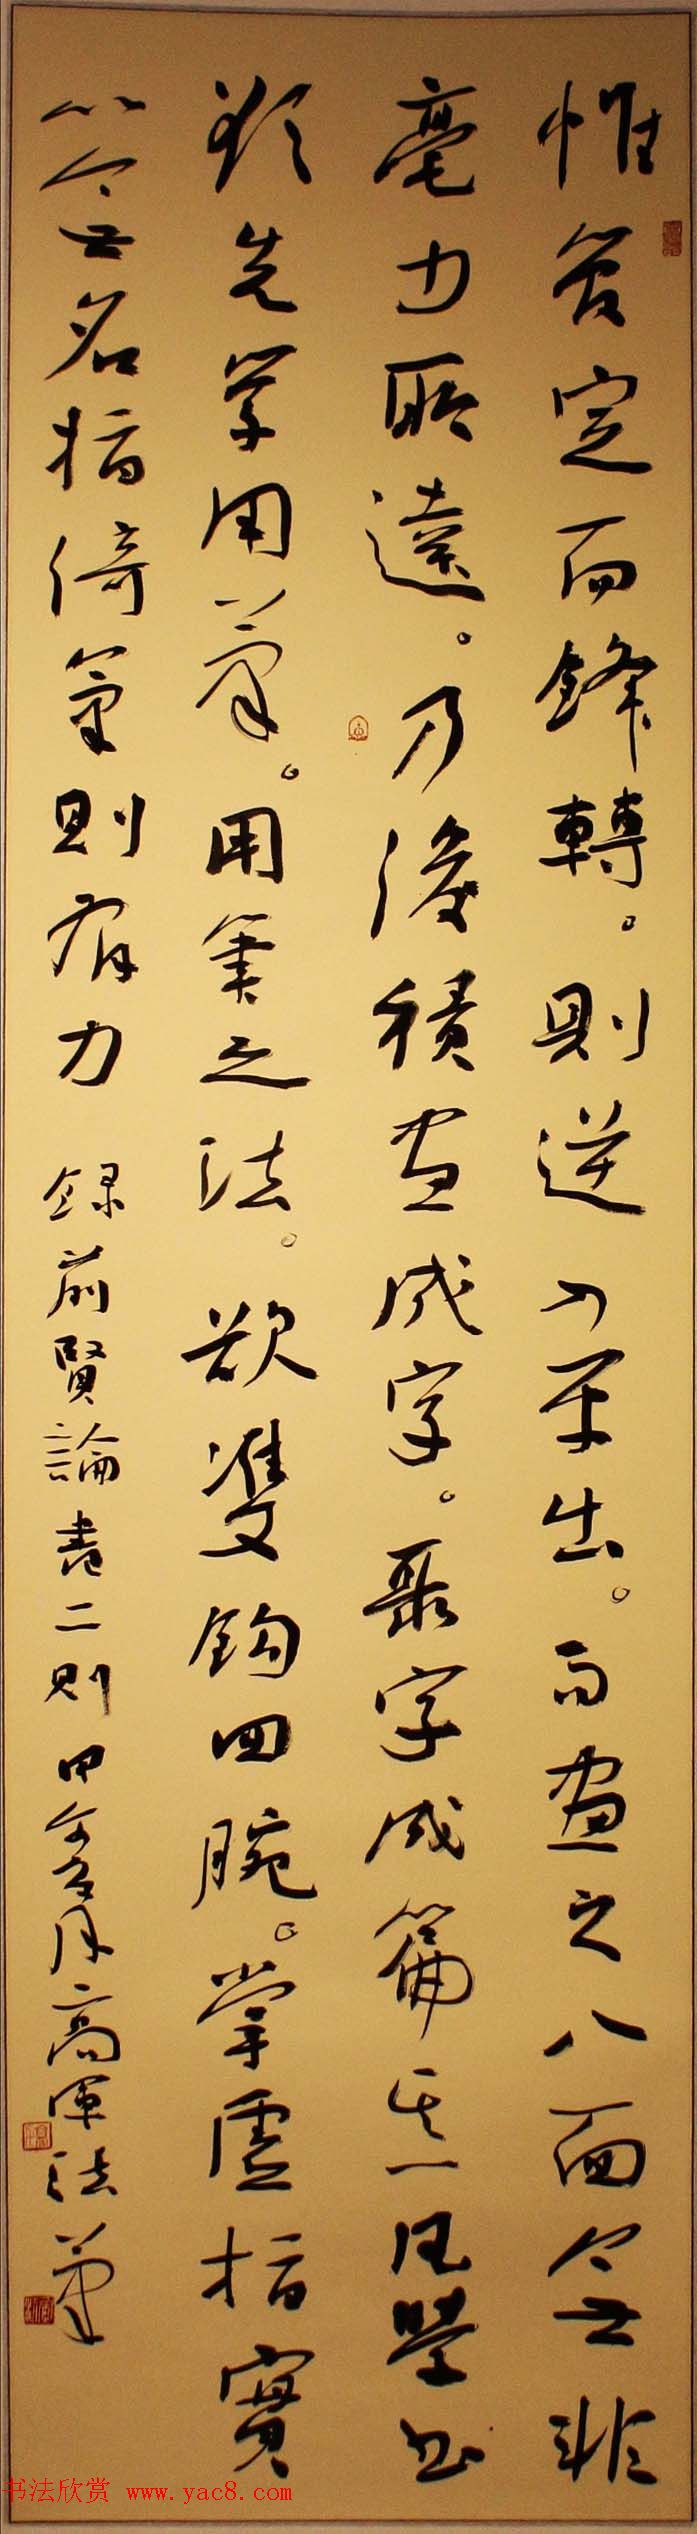 惟管定而鋒轉。則逆入平出。而畫之八面無非
毫力所達。乃後積畫成字。聚字成篇其一凡學書
欲先學用筆。用筆之法。欲雙鈎回腕。掌虛指實
以無名指倚筆則有力 錄前賢論書二則 甲午夏月高軍法筆
书法欣赏 www.yac8.com